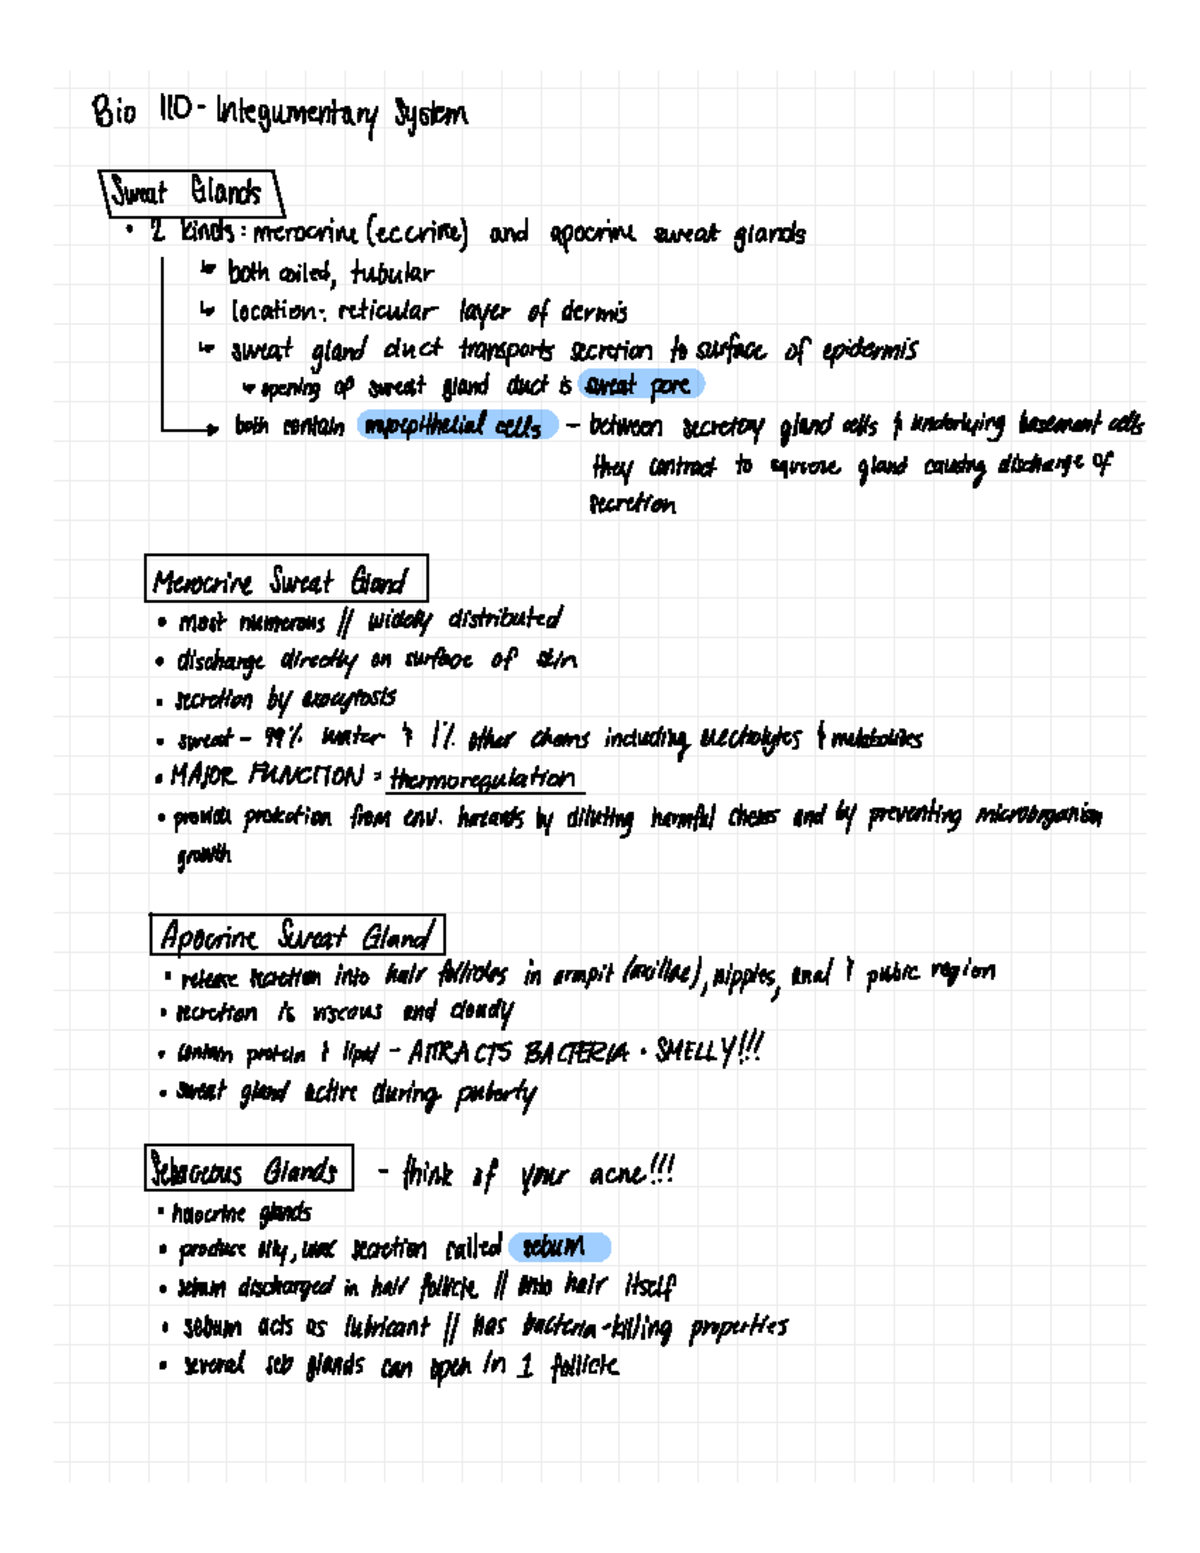 Bio 110 - Integumentary System
Sweat Glands
• 2 kinds: merocrine (eccrine) and apocrine sweat glands
↳ both coiled, tubular
↳ location: reticular layer of dermis
↳ sweat gland duct transports secretion to surface of epidermis
↳ opening of sweat gland duct is sweat pore
both contain myoepithelial cells - between secretory gland cells & underlying basement cells
they contract to squeeze gland causing discharge of
secretion
Merocrine Sweat Gland
• most numerous // widely distributed
• discharge directly on surface of skin
• secretion by exocytosis
• sweat - 99% water & 1% other chems including electrolytes & metabolites
• MAJOR FUNCTION = thermoregulation
• provides protection from env. hazards by diluting harmful chems and by preventing microorganism
growth
Apocrine Sweat Gland
• release secretion into hair follicles in armpit (axillae), nipples, anal & pubic region
• secretion is viscous and cloudy
• contain protein & lipid - ATTRACTS BACTERIA • SMELLY!!!
• sweat gland active during puberty
Sebaceous Glands - think of your acne!!!
• holocrine glands
• produce oily, wax secretion called sebum
• sebum discharged in hair follicle // onto hair itself
• sebum acts as lubricant // has bacteria-killing properties
• several seb glands can open in 1 follicle